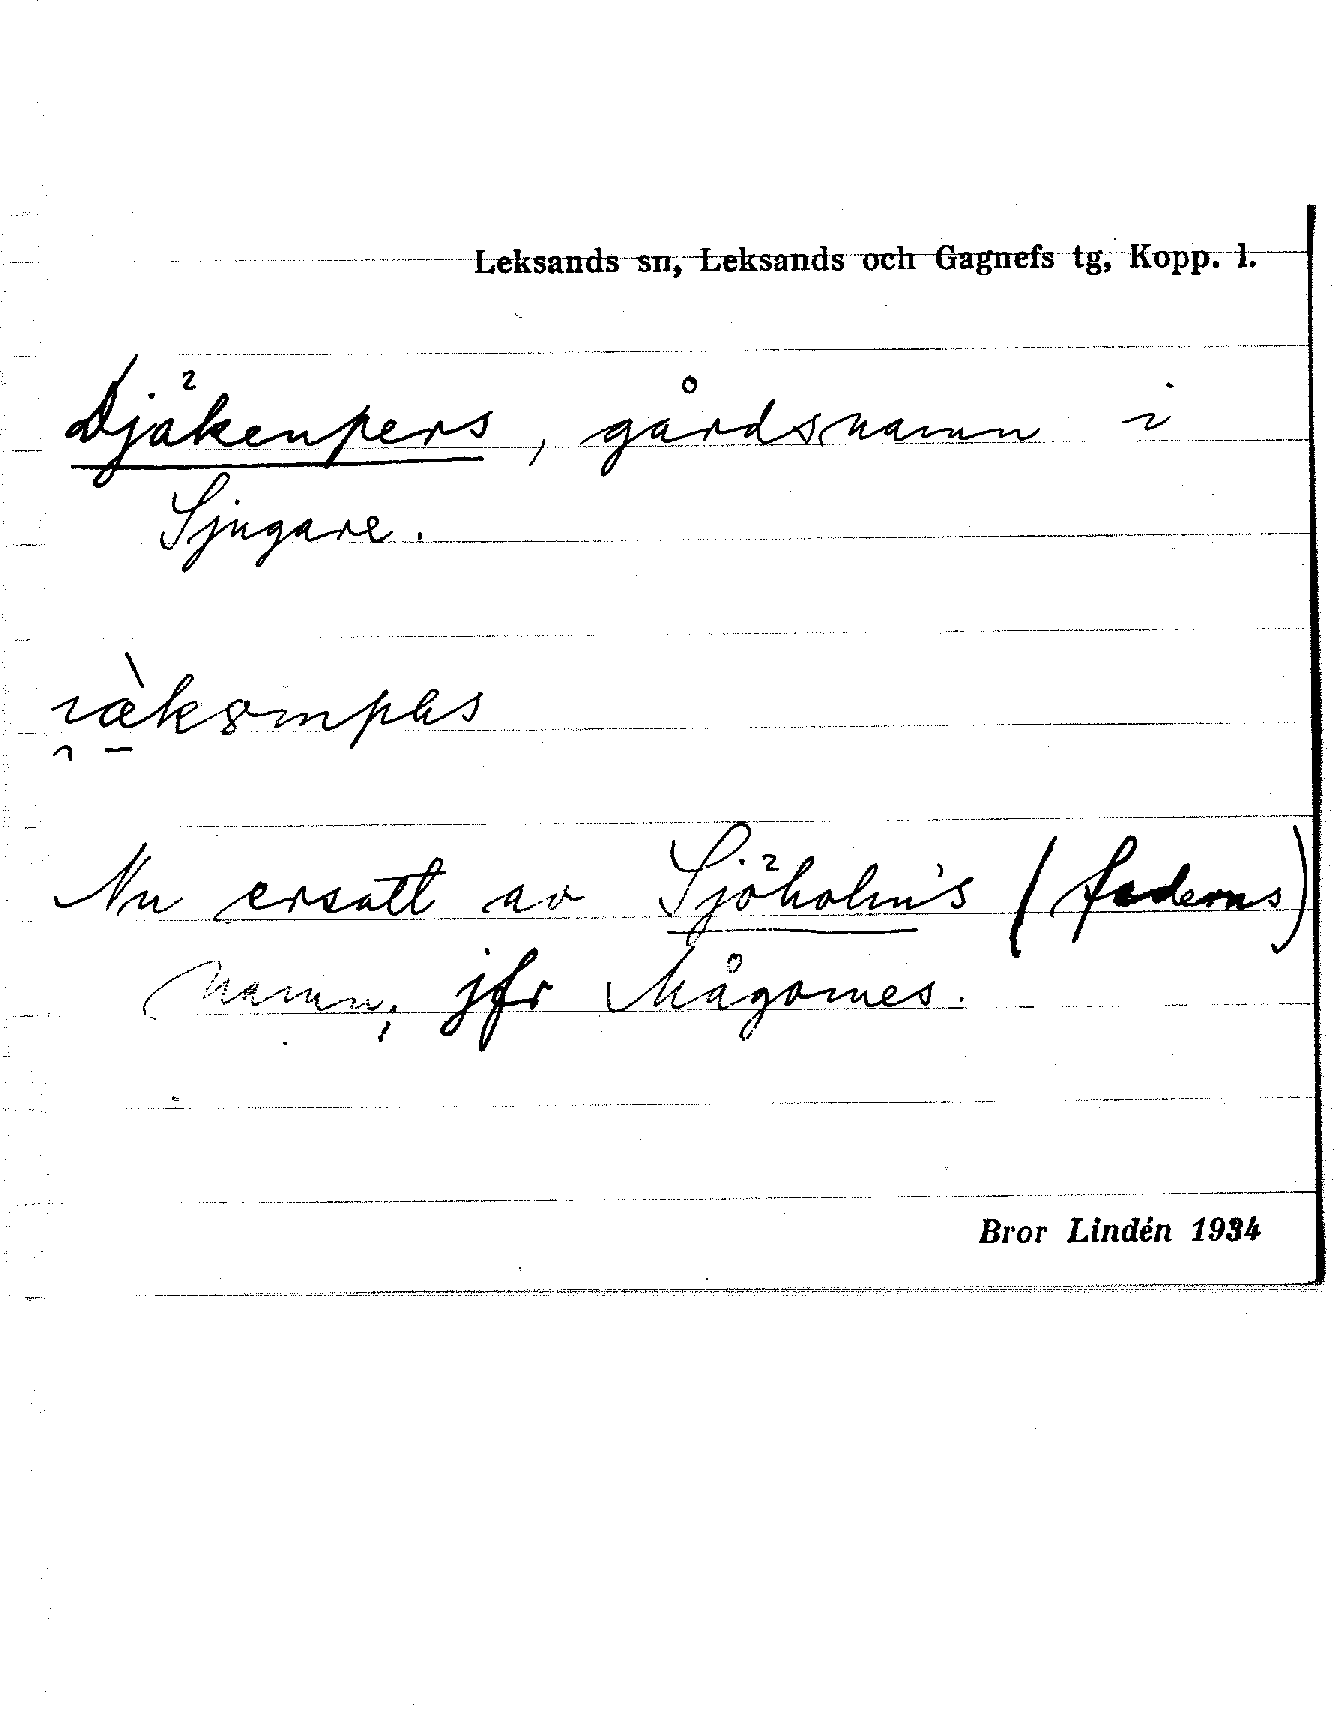 Leksands sn, Leksands och Gagnefs tg, Kopp. l.
Djäkenpers, gårdsnamn i
Sjugare.
Nu ersatt av Sjöholms (faderns)
namn; jfr Mågomes.
Bror Lindén 1934